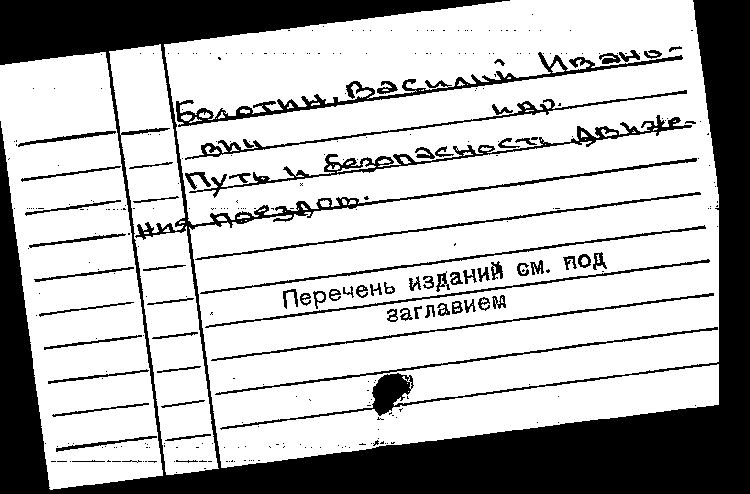 Болотин, Василий Ивано-
вич и др.
Путь и безопасность движе-
ния поездов.
Перечень изданий см. под
заглавием